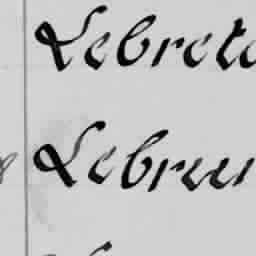 Lebreto
Lebrun